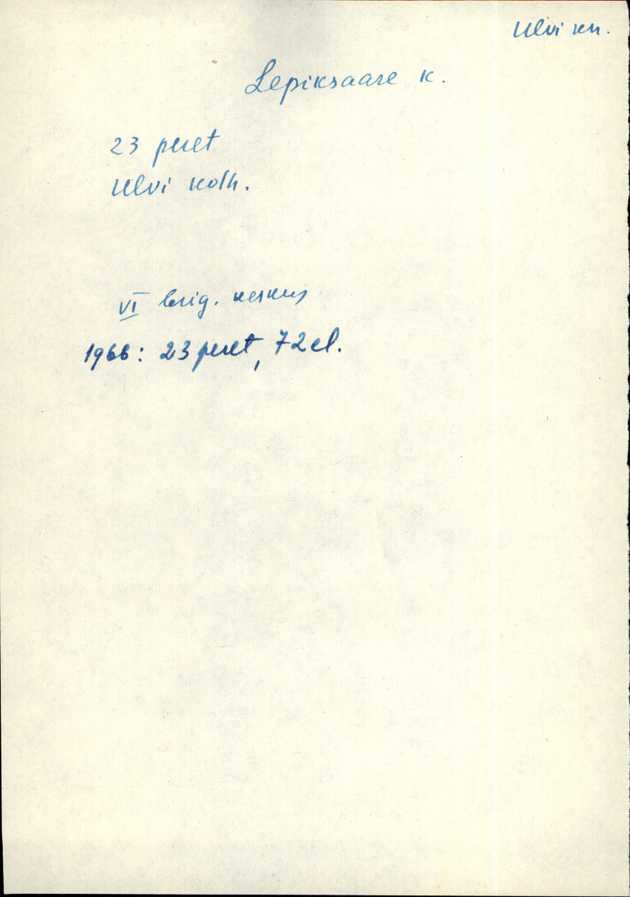 Ulvi kn.
Lepiksaare k.
23 peret
Ulvi kolh.
VI brig. keskus
1966: 23 peret, 72 el.